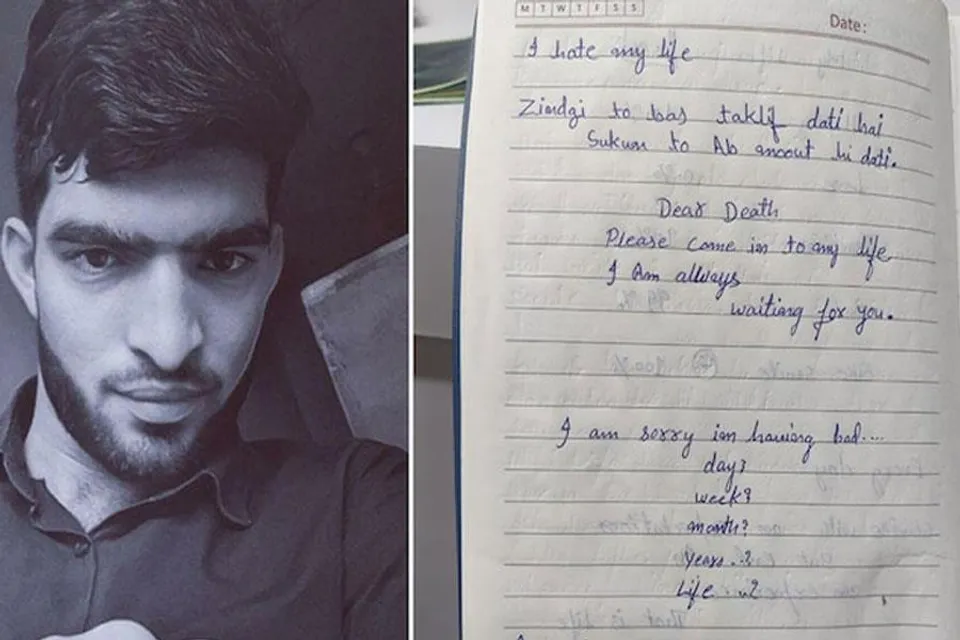 M T W T F S S
Date:
I hate my life
Zindgi to bas taklif dati hai
Sukun to Ab moout hi dati.
Dear Death
Please come in to my life
I Am allways
waiting for you.
I am sorry im having bad....
day?
week?
month?
years..?
Life ..?